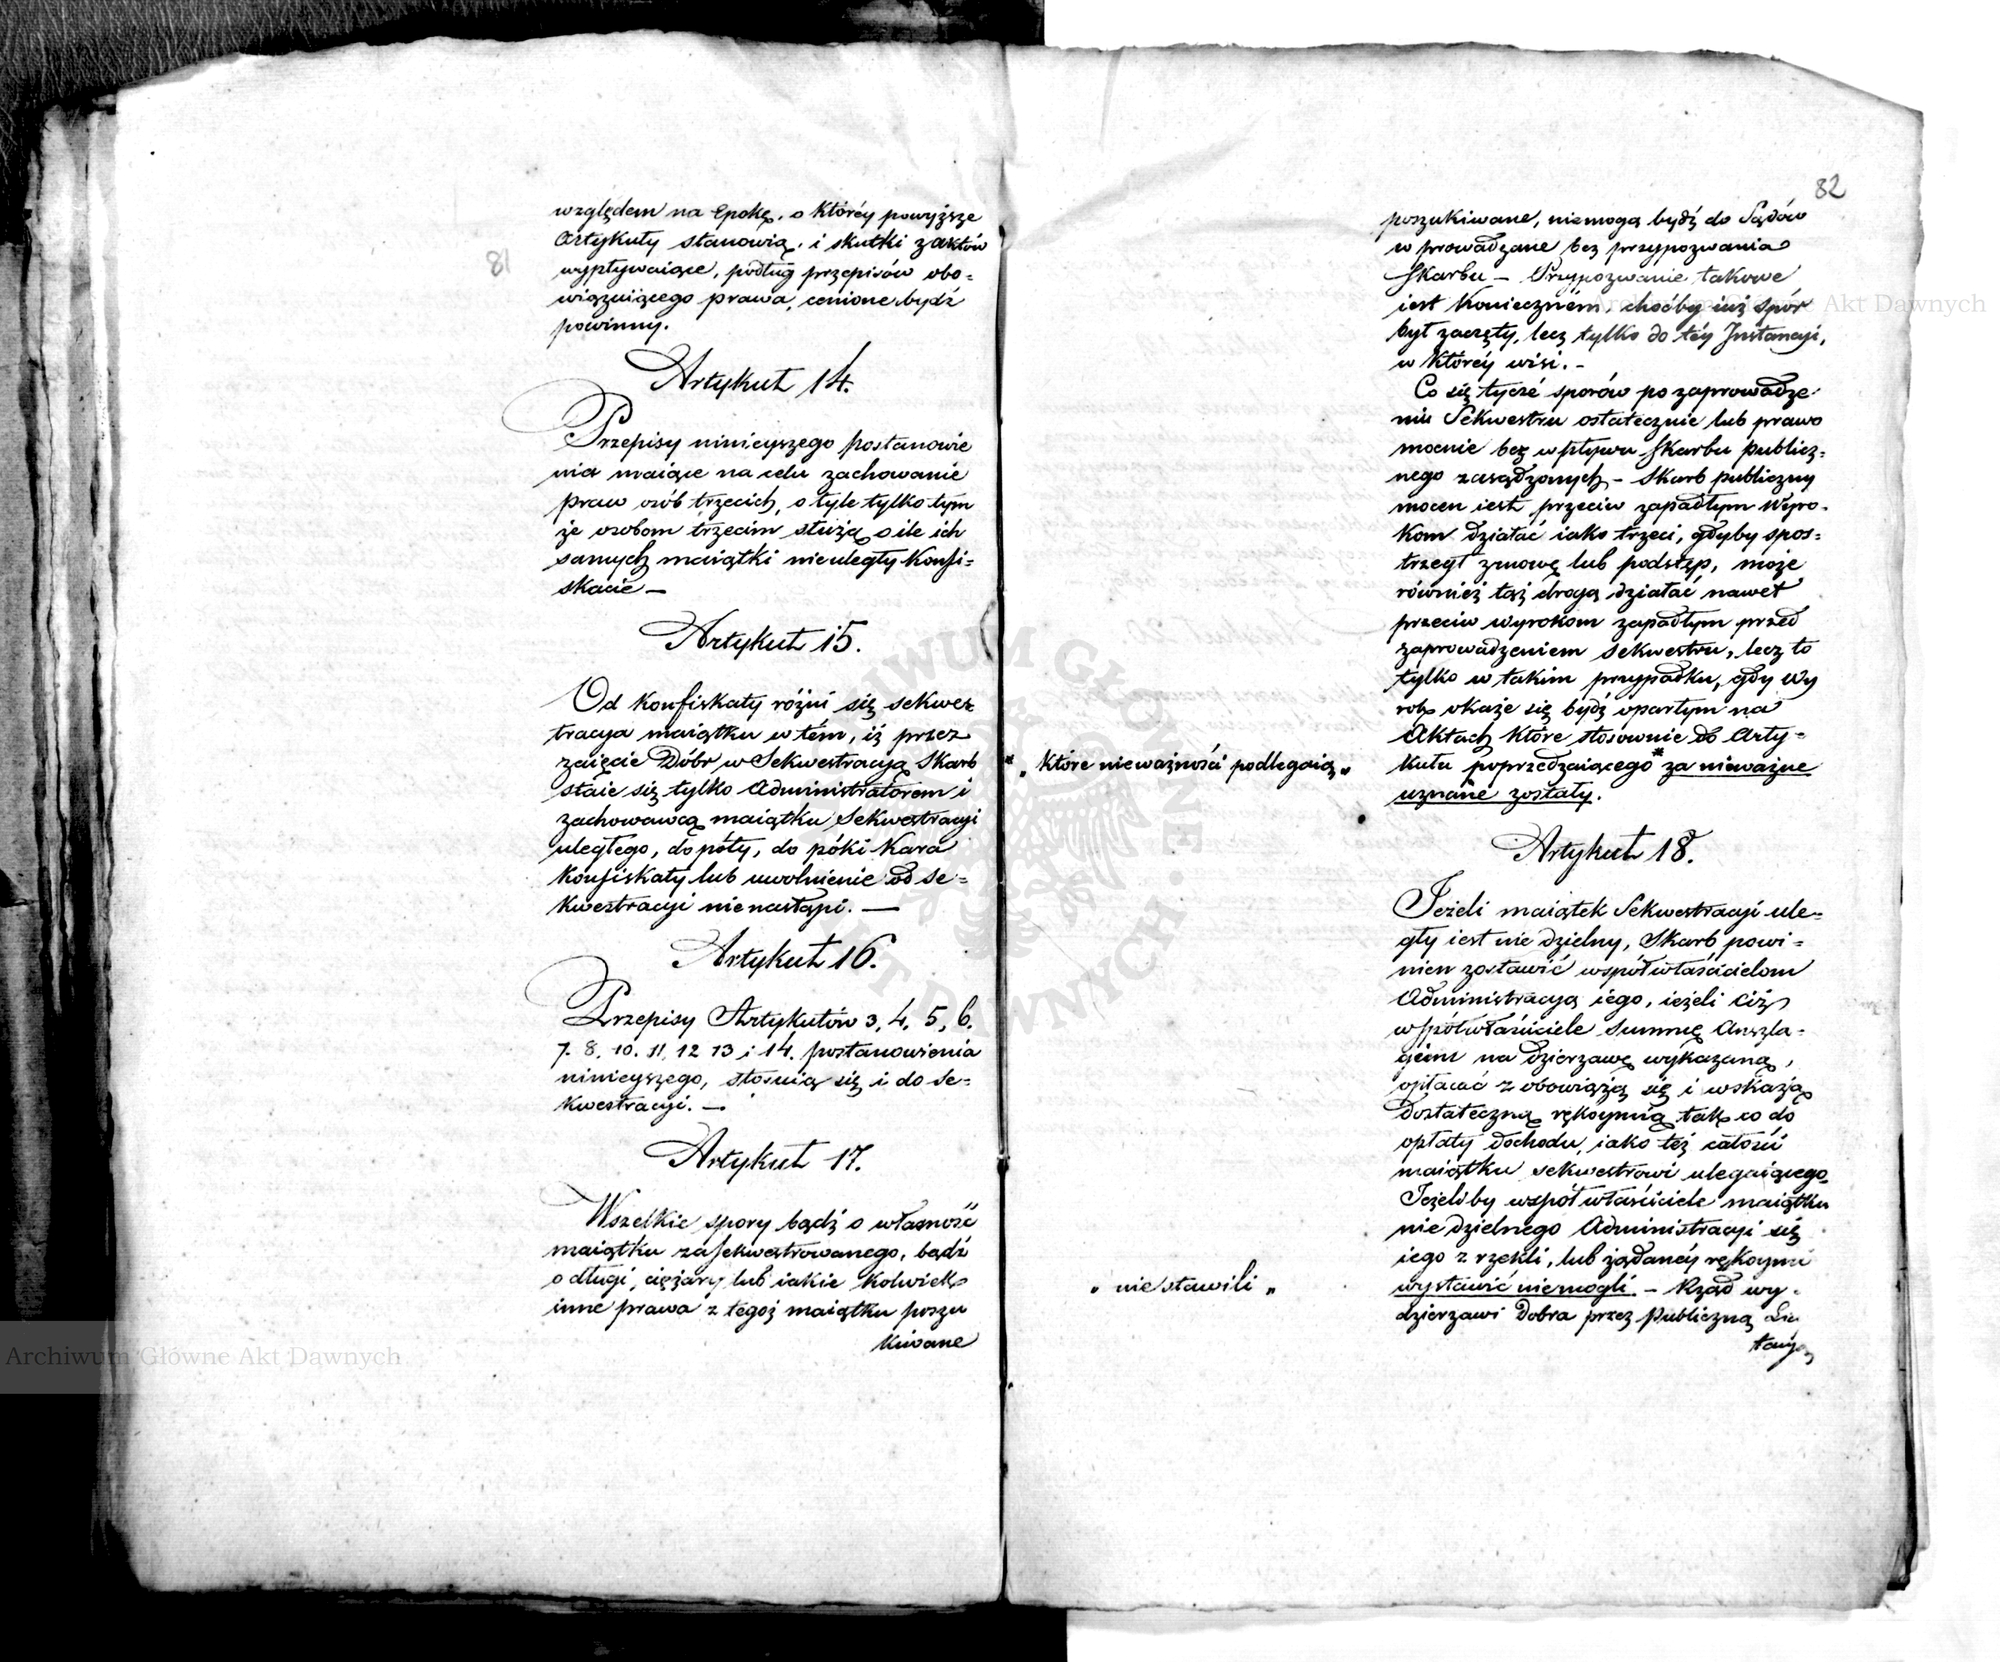 81
względem na Epokę, o któréy powyższe
Artykuły stanowią, i skutki z aktów
wypływaiące, podług przepisów obo=
wiązuiącego prawa, cenione bydź
powinny.
Artykuł 14.
Przepisy ninieyszego postanowie
nia maiące na celu zachowanie
praw osób trzecich, o tyle tylko tym
że osobom trzecim służą o ile ich
samych maiątki nie uległy Konfi=
skacie —
Artykuł 15.
Od Konfiskaty różni się sekwes
tracya maiątku w tém, iż przez
zaięcie Dóbr w Sekwestracyą Skarb
staie się tylko Administratorem i
zachowawcą maiątku Sekwestracyi
uległego, dopóty, do póki Kara
Konfiskaty lub uwolnienie od Se=
kwestracyi nie nastąpi. —
Artykuł 16.
Przepisy Artykułów 3, 4, 5, 6.
7. 8. 10. 11, 12 13 i 14. postanowienia
ninieyszego, stosuią się i do Se=
kwestracyi. —
Artykuł 17.
Wszelkie spory bądź o własność
maiątku zasekwestrowanego, bądź
o długi, ciężary lub iakie kolwiek
inne prawa z tegoż maiątku poszu
kiwane
82
poszukiwane, niemogą bydź do Sądów
w prowadzane bez przypozwania
Skarbu — Przypozwanie takowe
iest Konieczném, choćby iuż spór
był zaczęty, lecz tylko do téy Instancyi,
w któréy wisi. —
Co się tycze sporów po zaprowadze=
niu Sekwestru ostatecznie lub prawo
mocnie bez wpływu Skarbu publicz=
nego zasądzonych — Skarb publiczny
mocen iest przeciw zapadłym Wyro=
kom działać iako trzeci, gdyby spos=
trzegł zmowę lub podstęp, może
również tąż drogą działać nawet
przeciw wyrokom zapadłym przed
zaprowadzeniem Sekwestru, lecz to
tylko w takim przypadku, gdy Wy
rok okaże się bydź opartym na
Aktach które stosownie do Arty=
kułu poprzedzaiącego * za nieważne
uznane zostały.
* „ które nieważności podlegaią „
Artykuł 18.
Jeżeli maiątek Sekwestracyi ule=
gły iest nie dzielny, Skarb powi=
nien zostawić współwłaścicielom
Administracyą iego, ieżeli ciż
współwłaściciele Summę Anszla=
giem na dzierżawę wykazaną,
opłacać z obowiążą się i wskażą
dostateczną rękoymią tak co do
opłaty dochodu, iako też całości
maiątku sekwestrowi ulegaiącego.
Jeżeliby współwłaściciele maiątku
nie dzielnego Administracyi się
iego z rzekli, lub żądanéy rękoymi
wystawić niemogli. — Rząd wy=
„ nie stawili „
dzierżawi Dobra przez publiczną Li
tacyą
Archiwum Główne Akt Dawnych
Archiwum Główne Akt Dawnych